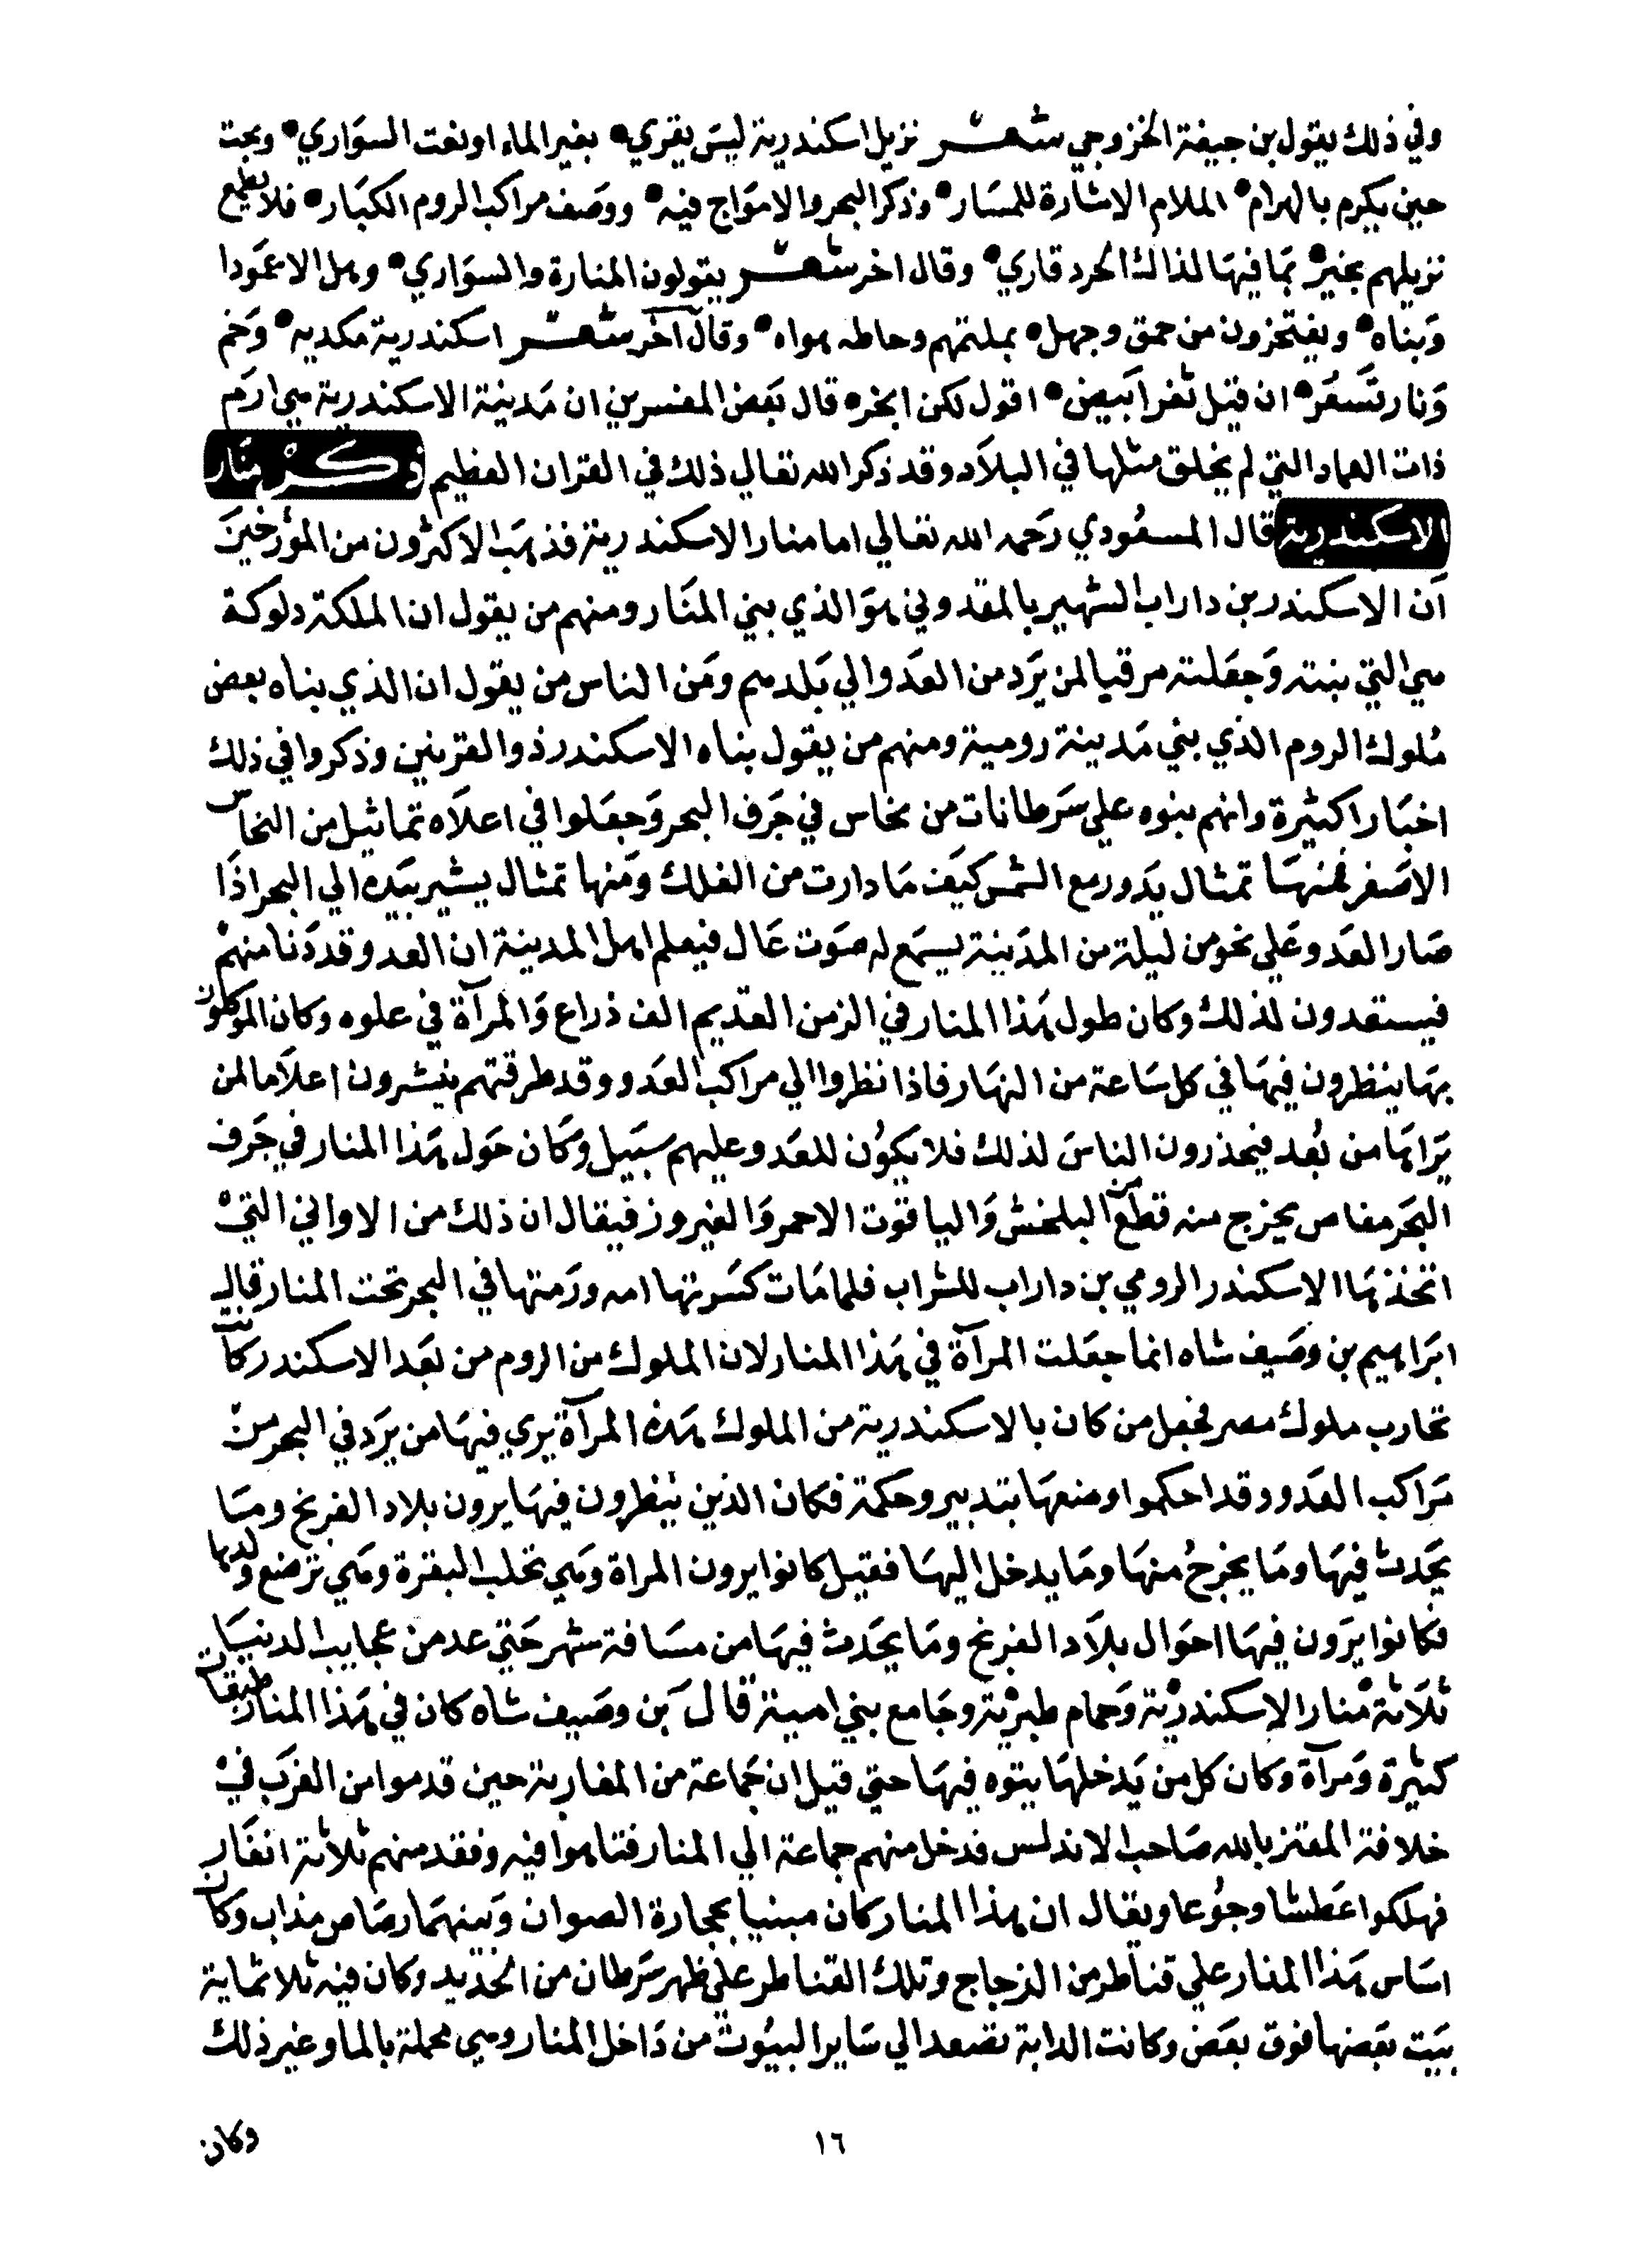 وفي ذلك يقول بن جيفة الخزوجي شعر نزيل اسكندرية ليس يقري • بغير الماء اونعت السواري • وبحت
حين يكرم بالهرام • الملام الاشارة للمسار • وذكر البحر والامواج فيه • ووصف مراكب الروم الكبار • فلا يطمع
نزيلهم بخبز • بما فيها لذاك الحرد قاري • وقال اخر شعر يقولون المنارة والسواري • وهل الا عمودا
وبناه • ويفتخرون من حمق وجهل • بملتمهم وحاطه بهواه • وقال آخر شعر اسكندرية مكديه • وخم
ونار تسعر • ان قيل ثغر ابيض • اقول لكن ابخر • قال بعض المفسرين ان مدينة الاسكندرية هي ارم
ذات العماد التي لم يخلق مثلها في البلاد وقد ذكر الله تعالي ذلك في القران العظيم ذكر منار
الاسكندرية قال المسعودي رحمه الله تعالي اما منار الاسكندرية فذهب الاكثرون من المؤرخين
ان الاسكندر بن داراب الشهير بالمقدوني هو الذي بني المنار ومنهم من يقول ان الملكة دلوكة
هي التي بنته وجعلته مرقبا لمن يرد من العدو الي بلدهم ومن الناس من يقول ان الذي بناه بعض
ملوك الروم الذي بني مدينة رومية ومنهم من يقول بناه الاسكندر ذو القرنين وذكروا في ذلك
اخبارا كثيرة وانهم بنوه علي سرطانات من نحاس في جرف البحر وجعلوا في اعلاه تماثيل من النحاس
الاصفر فمنها تمثال يدور مع الشمس كيف ما دارت من الفلك ومنها تمثال يشير بيده الي البحر اذا
صار العدو علي نحو من ليلة من المدينة يسمع له صوت عال فيعلم اهل المدينة ان العدو قد دنا منهم
فيستعدون لذلك وكان طول هذا المنار في الزمن القديم الف ذراع والمرآة في علوه وكان الموكلون
بها ينظرون فيها في كل ساعة من النهار فاذا نظروا الي مراكب العدو وقد طرقتهم ينشرون اعلاما لمن
يراها من بعد فيحذرون الناس لذلك فلا يكون للعدو عليهم سبيل وكان حول هذا المنار في جرف
البحر مغاص يخرج منه قطع من البلخش والياقوت الاحمر والفيروز فيقال ان ذلك من الاواني التي
اتخذها الاسكندر الرومي بن داراب للشراب فلما مات كسرتها امه ورمتها في البحر تحت المنار قال
ابراهيم بن وصيف شاه انما جعلت المرآة في هذا المنار لان الملوك من الروم من بعد الاسكندر كانت
تحارب ملوك مصر فجعل من كان بالاسكندرية من الملوك هذه المرآة يري فيها من يرد في البحر من
مراكب العدو وقد احكموا وضعها بتدبير وحكمة فكان الذين ينظرون فيها يرون بلاد الفرنج وما
يحدث فيها وما يخرج منها وما يدخل اليها فقيل كانوا يرون المراة وهي تحلب البقرة وهي ترضع ولدها
فكانوا يرون فيها احوال بلاد الفرنج وما يحدث فيها من مسافة شهر حتي عد من عجايب الدنيا
ثلاثة منار الاسكندرية وحمام طبرية وجامع بني امية قال بن وصيف شاه كان في هذا المنار طبقات
كثيرة ومرآة وكان كل من يدخلها يتوه فيها حتي قيل ان جماعة من المغاربة حين قدموا من الغرب في
خلافة المقتز بالله صاحب الاندلس فدخل منهم جماعة الي المنار فتاهوا فيه وفقد منهم ثلاثة انفار
فهلكوا عطشا وجوعا ويقال ان هذا المنار كان مبنيا بحجارة الصوان وبينهما رصاص مذاب وكان
اساس هذا المنار علي قناطر من الزجاج وتلك القناطر علي ظهر سرطان من الحديد وكان فيه ثلاثماية
بيت بعضها فوق بعض وكانت الدابة تصعد الي ساير البيوت من داخل المنار وهي محملة بالما وغير ذلك
١٦
وكان